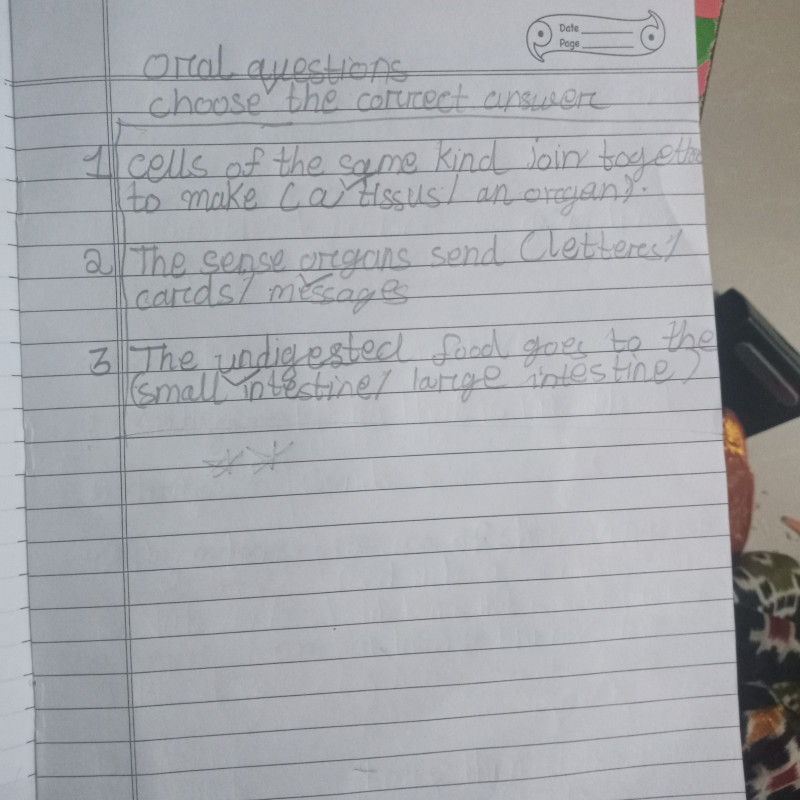 Date
Page
Oral questions
choose the correct answer
1 cells of the same kind join together
to make (a tissus/ an organ).
2 The sense organs send (letteres/
cards/ messages
3 The undigested food goes to the
(small intestine/ large intestine)